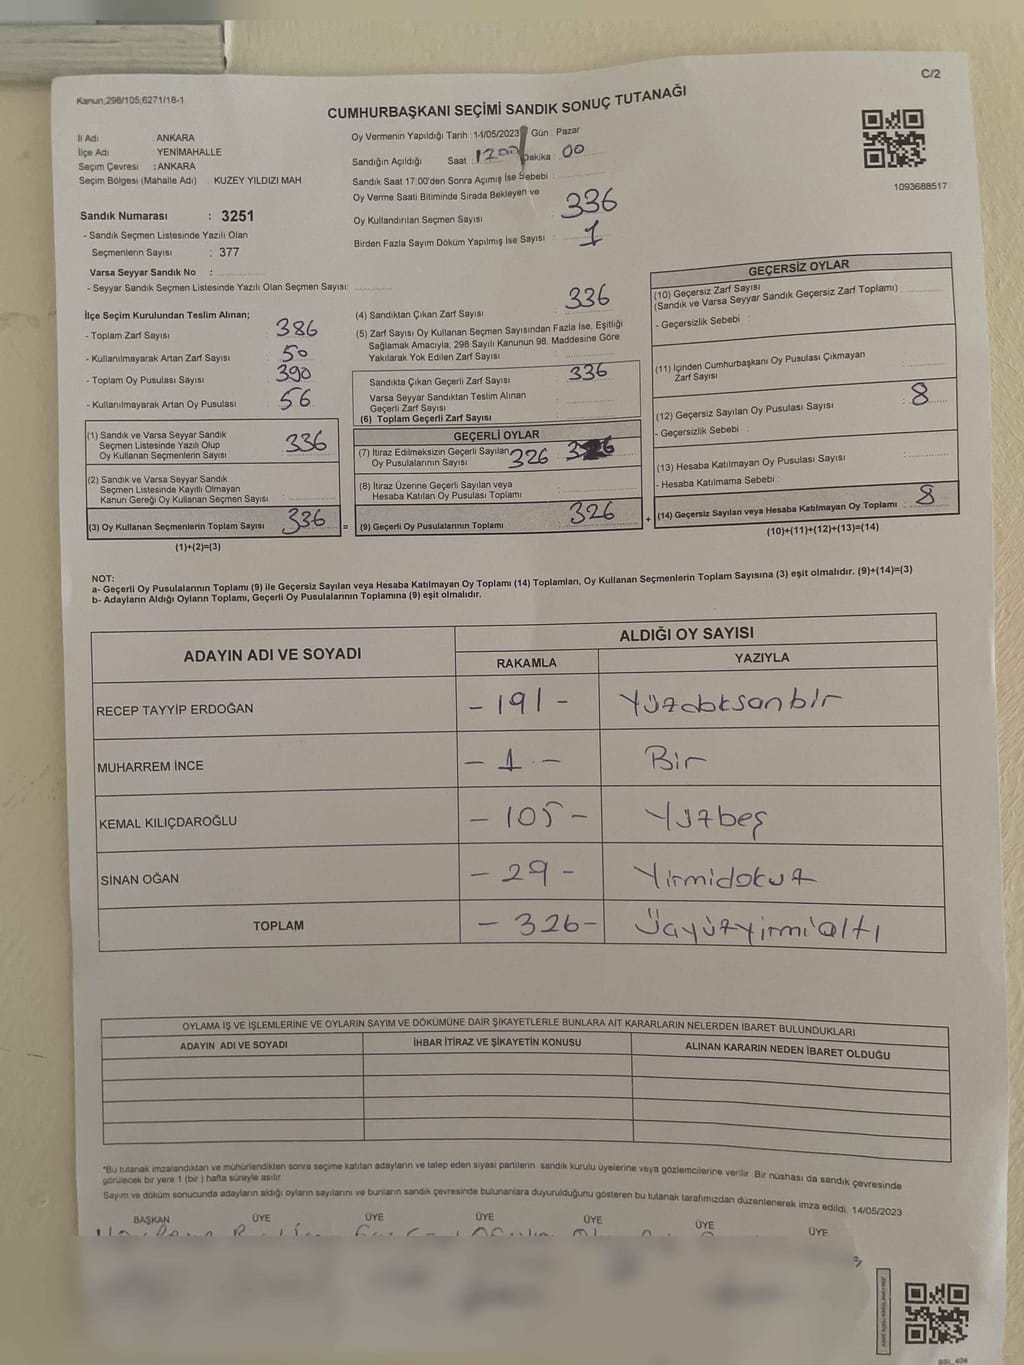 C/2
Kanun;298/105;6271/18-1
CUMHURBAŞKANI SEÇİMİ SANDIK SONUÇ TUTANAĞI
İl Adı : ANKARA
İlçe Adı : YENİMAHALLE
Seçim Çevresi : ANKARA
Seçim Bölgesi (Mahalle Adı) : KUZEY YILDIZI MAH.
Sandık Numarası : 3251
- Sandık Seçmen Listesinde Yazılı Olan
Seçmenlerin Sayısı : 377
Varsa Seyyar Sandık No :
- Seyyar Sandık Seçmen Listesinde Yazılı Olan Seçmen Sayısı:
İlçe Seçim Kurulundan Teslim Alınan;
- Toplam Zarf Sayısı : 386
- Kullanılmayarak Artan Zarf Sayısı : 50
- Toplam Oy Pusulası Sayısı : 390
- Kullanılmayarak Artan Oy Pusulası : 56
(1) Sandık ve Varsa Seyyar Sandık
Seçmen Listesinde Yazılı Olup
Oy Kullanan Seçmenlerin Sayısı : 336
(2) Sandık ve Varsa Seyyar Sandık
Seçmen Listesinde Kayıtlı Olmayan
Kanun Gereği Oy Kullanan Seçmen Sayısı :
(3) Oy Kullanan Seçmenlerin Toplam Sayısı : 336 =
(1)+(2)=(3)
Oy Vermenin Yapıldığı Tarih : 14/05/2023 Gün : Pazar
Sandığın Açıldığı Saat : Dakika : 00
Sandık Saat 17:00'den Sonra Açımış İse Sebebi :
Oy Verme Saati Bitiminde Sırada Bekleyen ve
Oy Kullandırılan Seçmen Sayısı : 336
Birden Fazla Sayım Döküm Yapılmış İse Sayısı : 1
(4) Sandıktan Çıkan Zarf Sayısı : 336
(5) Zarf Sayısı Oy Kullanan Seçmen Sayısından Fazla İse, Eşitliği
Sağlamak Amacıyla; 298 Sayılı Kanunun 98. Maddesine Göre
Yakılarak Yok Edilen Zarf Sayısı :
Sandıkta Çıkan Geçerli Zarf Sayısı : 336
Varsa Seyyar Sandıktan Teslim Alınan
Geçerli Zarf Sayısı :
(6) Toplam Geçerli Zarf Sayısı :
GEÇERLİ OYLAR
(7) İtiraz Edilmeksizin Geçerli Sayılan
Oy Pusulalarının Sayısı : 326
(8) İtiraz Üzerine Geçerli Sayılan veya
Hesaba Katılan Oy Pusulası Toplamı :
(9) Geçerli Oy Pusulalarının Toplamı : 326 +
1093688517
GEÇERSİZ OYLAR
(10) Geçersiz Zarf Sayısı
(Sandık ve Varsa Seyyar Sandık Geçersiz Zarf Toplamı) :
- Geçersizlik Sebebi :
(11) İçinden Cumhurbaşkanı Oy Pusulası Çıkmayan
Zarf Sayısı :
(12) Geçersiz Sayılan Oy Pusulası Sayısı : 8
- Geçersizlik Sebebi :
(13) Hesaba Katılmayan Oy Pusulası Sayısı :
- Hesaba Katılmama Sebebi :
(14) Geçersiz Sayılan veya Hesaba Katılmayan Oy Toplamı : 8
(10)+(11)+(12)+(13)=(14)
NOT:
a- Geçerli Oy Pusulalarının Toplamı (9) ile Geçersiz Sayılan veya Hesaba Katılmayan Oy Toplamı (14) Toplamları, Oy Kullanan Seçmenlerin Toplam Sayısına (3) eşit olmalıdır. (9)+(14)=(3)
b- Adayların Aldığı Oyların Toplamı, Geçerli Oy Pusulalarının Toplamına (9) eşit olmalıdır.
ADAYIN ADI VE SOYADI
ALDIĞI OY SAYISI
RAKAMLA YAZIYLA
RECEP TAYYİP ERDOĞAN - 191 - Yüzdoksanbir
MUHARREM İNCE - 1 - Bir
KEMAL KILIÇDAROĞLU - 105 - Yüzbeş
SİNAN OĞAN - 29 - Yirmidokuz
TOPLAM - 326 - Üçyüzyirmialtı
OYLAMA İŞ VE İŞLEMLERİNE VE OYLARIN SAYIM VE DÖKÜMÜNE DAİR ŞİKAYETLERLE BUNLARA AİT KARARLARIN NELERDEN İBARET BULUNDUKLARI
ADAYIN ADI VE SOYADI İHBAR İTİRAZ VE ŞİKAYETİN KONUSU ALINAN KARARIN NEDEN İBARET OLDUĞU
*Bu tutanak imzalandıktan ve mühürlendikten sonra seçime katılan adayların ve talep eden siyasi partilerin sandık kurulu üyelerine veya gözlemcilerine verilir. Bir nüshası da sandık çevresinde
görülecek bir yere 1 (bir) hafta süreyle asılır.
Sayım ve döküm sonucunda adayların aldığı oyların sayılarını ve bunların sandık çevresinde bulunanlara duyurulduğunu gösteren bu tutanak tarafımızdan düzenlenerek imza edildi. 14/05/2023
BAŞKAN ÜYE ÜYE ÜYE ÜYE ÜYE ÜYE